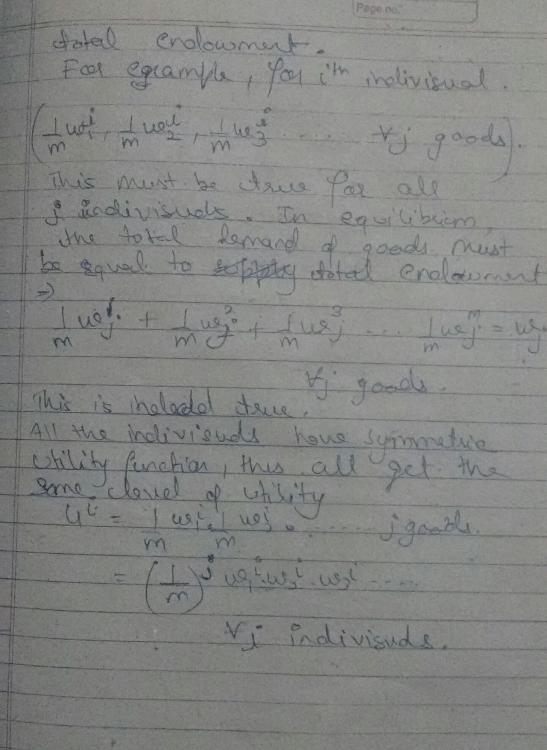 Page no.
total endowment.
For egxample, for ith indivisual.
(1/m ω₁ⁱ, 1/m ω₂ⁱ, 1/m ω₃ⁱ ...... ∀j goods).
This must be true for all
j indivisuds. In equilibrim,
the total demand of goods must
be equal to total endowment
⇒
1/m ωⱼ¹ + 1/m ωⱼ² + 1/m ωⱼ³ ... 1/m ωⱼᵐ = ωⱼ
∀j goods.
This is true.
All the indivisuds have symmetric
utility function, this all get the
same level of utility
Uⁱ = 1/m ωⱼⁱ. 1/m ωⱼ. ...... j goods.
= (1/m)ʲ ω₁ⁱ.ω₂ⁱ.ω₃ⁱ .....
∀i indivisuds.